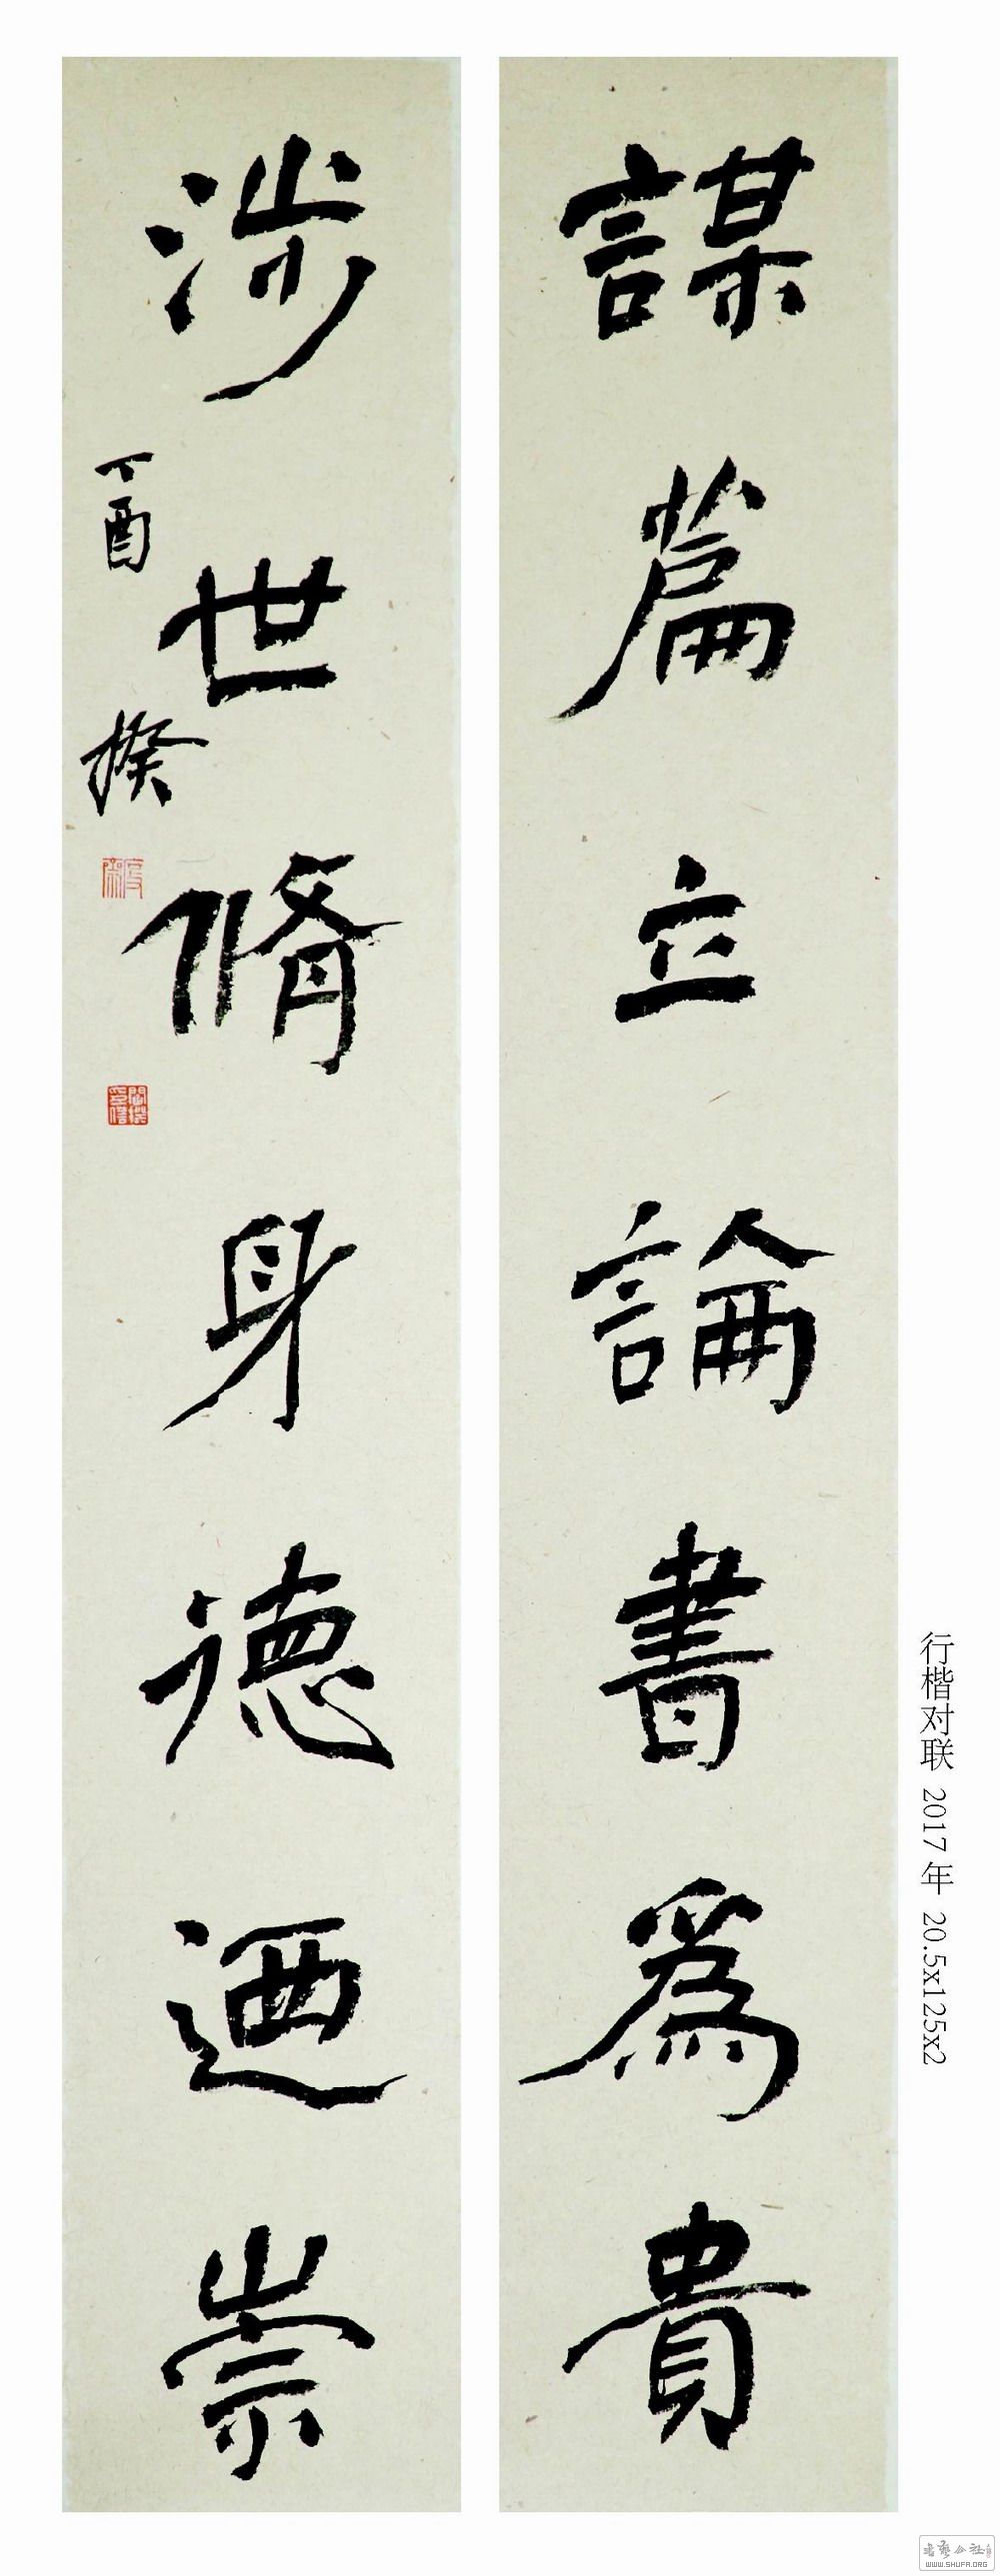 謀篇立論書為貴
涉世脩身德迺崇
丁酉 揆
行楷对联 2017 年 20.5x125x2
WWW.SHUFA.ORG